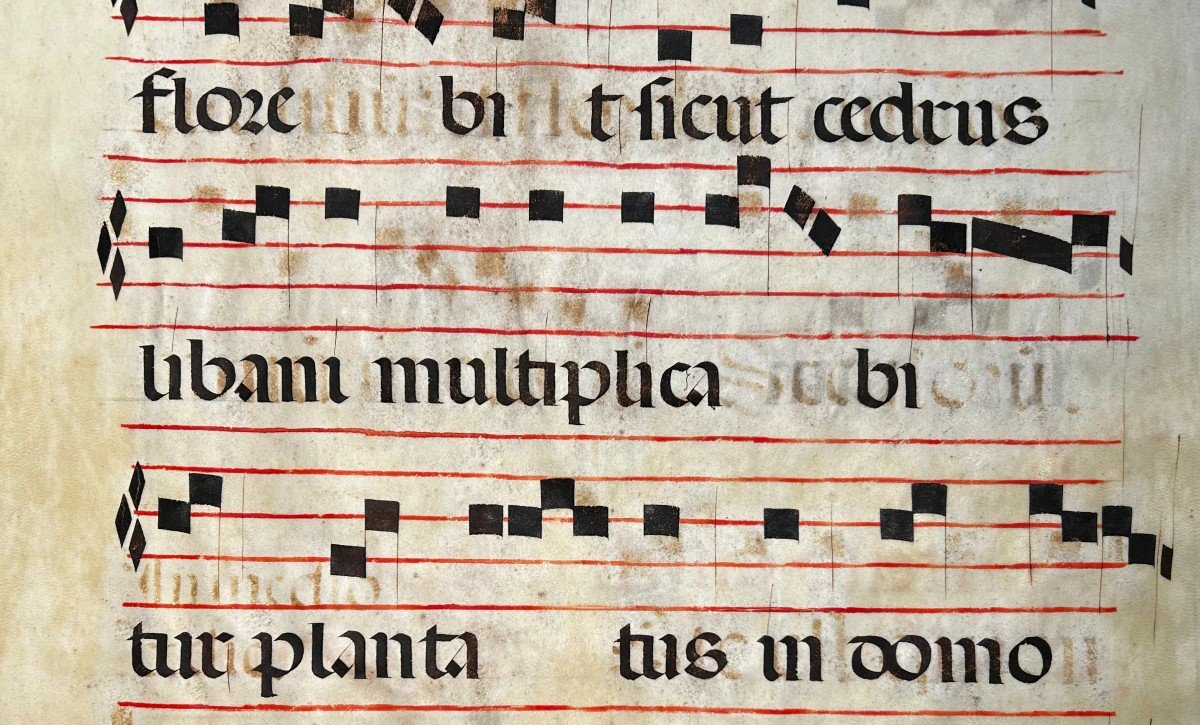 flore bi t sicut cedrus
libani multiplica bi
In medio
tur planta tus in domo